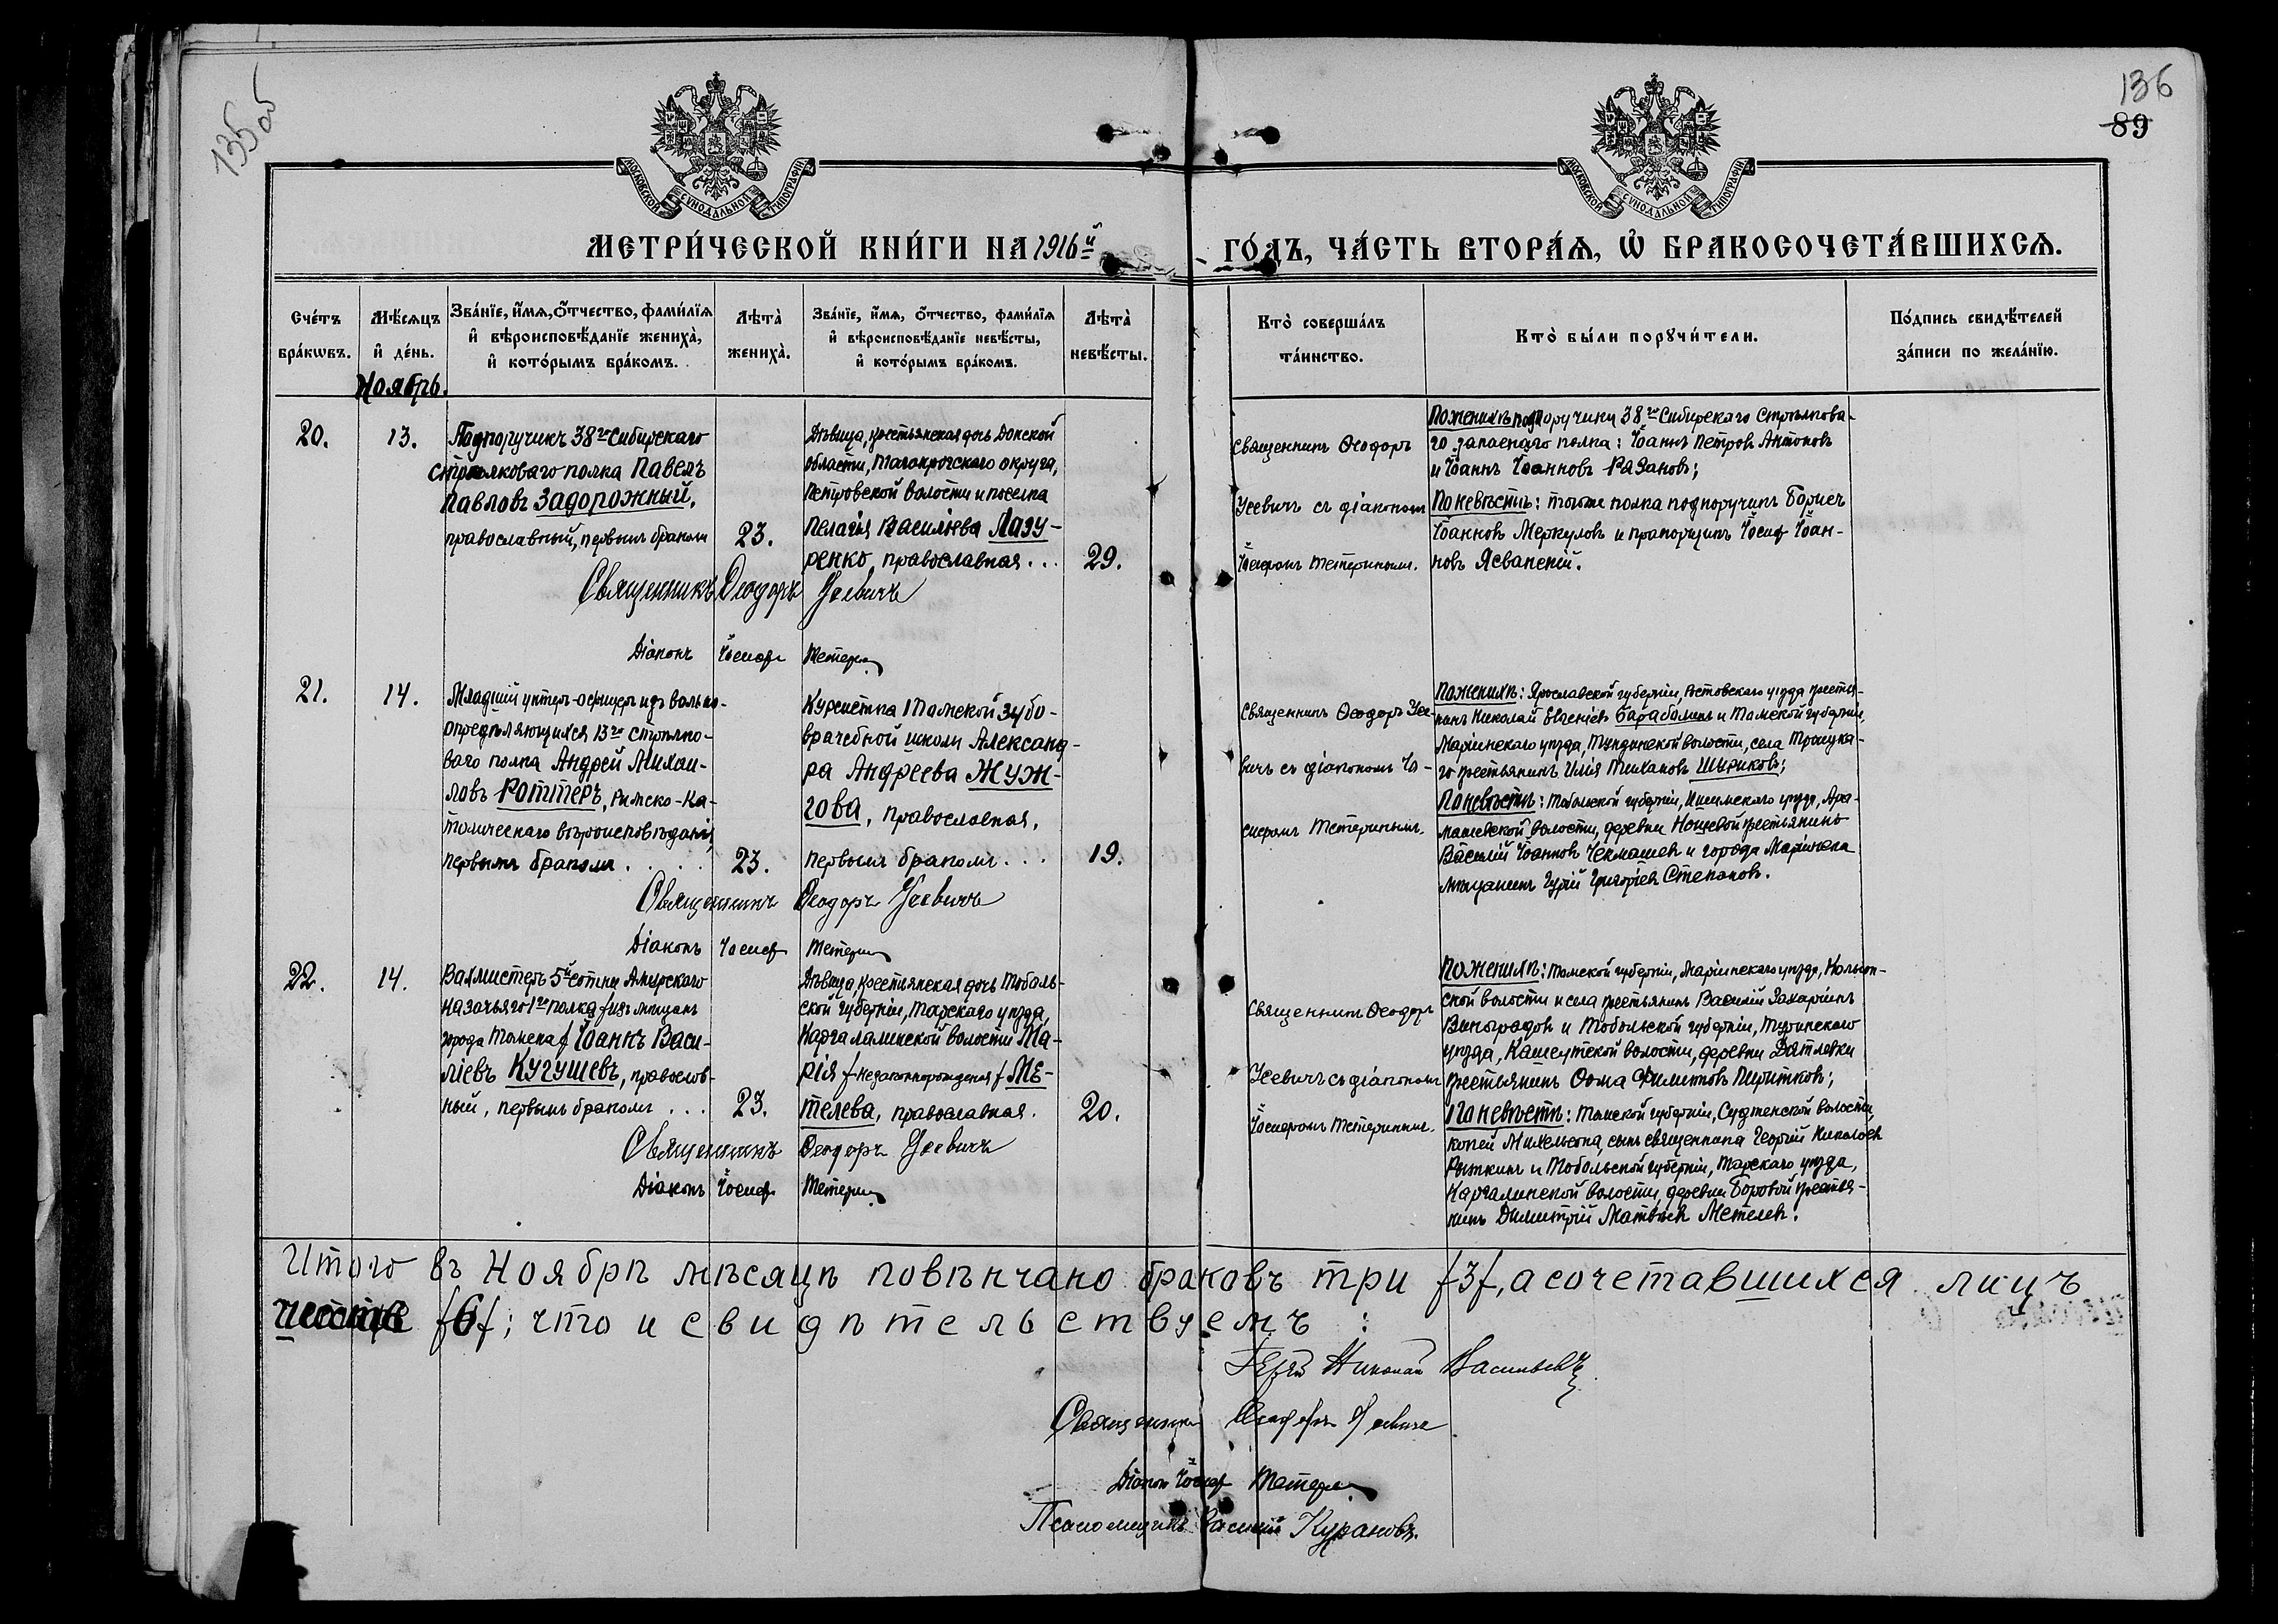 135об
136
89
МОСКОВСКОЙ СѴНОДАЛЬНОЙ ТИПОГРАФІИ
МОСКОВСКОЙ СѴНОДАЛЬНОЙ ТИПОГРАФІИ
МЕТРИ́ЧЕСКОЙ КНИ́ГИ НА 1916й
ГО́ДЪ, ЧА́СТЬ ВТОРА́Ѧ, Ѽ БРАКОСОЧЕТА́ВШИХСѦ.
Сче́тъ бра́кѡвъ.
Мѣ́сѧцъ и҆ де́нь.
Зва́нїе, и҆́мѧ, ѻ҆́тчество, фами́лїѧ и҆ вѣроисповѣ́данїе жениха̀, и҆ кото́рымъ бра́комъ.
Лѣта̀ жениха̀.
Зва́нїе, и҆́мѧ, ѻ҆́тчество, фами́лїѧ и҆ вѣроисповѣ́данїе невѣ́сты, и҆ кото́рымъ бра́комъ.
Лѣта̀ невѣ́сты.
Кто̀ соверша́лъ та́инство.
Кто̀ бы́ли порꙋчи́тели.
По́дпись свидѣ́телей за́писи по жела́нїю.
Ноябрь.
20.
13.
Подпоручикъ 38го Сибирскаго
стрѣлковаго полка Павелъ
Павловъ Задорожный,
православный, первымъ бракомъ
23.
Дѣвица, крестьянская дочь Донской
области, Таганрогскаго округа,
Петровской волости и поселка
Пелагія Василіева Лазу-
ренко, православная...
29.
Священникъ Ѳеодоръ
Усевичъ съ діакономъ
Іосифомъ Тетеринымъ.
По женихѣ: подпоручики 38го Сибирскаго Стрѣлкова-
го запаснаго полка: Іоаннъ Петровъ Антоновъ
и Іоаннъ Іоанновъ Рязановъ;
По невѣстѣ: того же полка подпоручикъ Борисъ
Іоанновъ Меркуловъ и прапорщикъ Іосиф Іоан-
новъ Ясванскій.
Священникъ Ѳеодоръ Усевичъ
Діаконъ Іосифъ Тетеринъ
21.
14.
Младшій унтеръ-офицеръ изъ вольно-
опредѣляющихся 13го стрѣлко-
ваго полка Андрей Михаи-
ловъ Роттеръ, Римско-Ка-
толическаго вѣроисповѣданія,
первымъ бракомъ
23.
Курсистка 1 Томской зубо-
врачебной школы Александ-
ра Андреева Жуж-
гова, православная,
первымъ бракомъ...
19.
Священникъ Ѳеодоръ Усе-
вичъ съ діакономъ Іо-
сифомъ Тетеринымъ.
По женихѣ: Ярославской губерніи, Ростовскаго уѣзда крестья-
нинъ Николай Евгеніевъ Барабалинъ и Томской губерніи,
Маріинскаго уѣзда, Тундинской волости, села Троицка-
го крестьянинъ Илія Тихановъ Шыриковъ;
По невѣстѣ: Тобольской губерніи, Ишимскаго уѣзда, Ара-
машевской волости, деревни крестьянинъ
Василій Іоанновъ Чекмашев и города Маріинска
мѣщанинъ Гурій Григоріев Степановъ.
Священникъ Ѳеодоръ Усевичъ
Діаконъ Іосифъ Тетеринъ
22.
14.
Вахмистеръ 5й сотни Амурскаго
казачьяго 1го полка /изъ мѣщанъ
города Томска/ Іоаннъ Васи-
ліевъ Кугушевъ, православ-
ный, первымъ бракомъ...
23.
Дѣвица, крестьянская дочь Тоболь-
ской губерніи, Тарскаго уѣзда,
Каргалинской волости Ма-
рія /незаконнорожденная/ Ме-
телева, православная.
20.
Священникъ Ѳеодоръ
Усевичъ съ діакономъ
Іосифомъ Тетеринымъ.
По женихѣ: Томской губерніи, Маріинскаго уѣзда, Кольон-
ской волости и села крестьянинъ Василій Захаріинъ
Виноградов и Тобольской губерніи, Туринскаго
уѣзда, Кашегутской волости, деревни Дятлевки
крестьянинъ Ѳома Филиповъ Пиритковъ;
По невѣстѣ: Томской губерніи, Судженской волости
копей Михельсона, сынъ священника Георгій Николаевъ
Рыжкинъ и Тобольской губерніи, Тарскаго уѣзда,
Каргалинской волости, деревни Боровой крестья-
нинъ Димитрій Матвѣевъ Метелевъ.
Священникъ Ѳеодоръ Усевичъ
Діаконъ Іосифъ Тетеринъ
Итого въ Ноябрѣ мѣсяцѣ повѣнчано браковъ три /3/, а сочетавшихся лицъ
шесть /6/; что и свидѣтельствуемъ:
Іерей Николай Васильевъ
Священникъ Ѳеодоръ Усевичъ
Діаконъ Іосифъ Тетеринъ
Псаломщикъ Василій Курановъ.